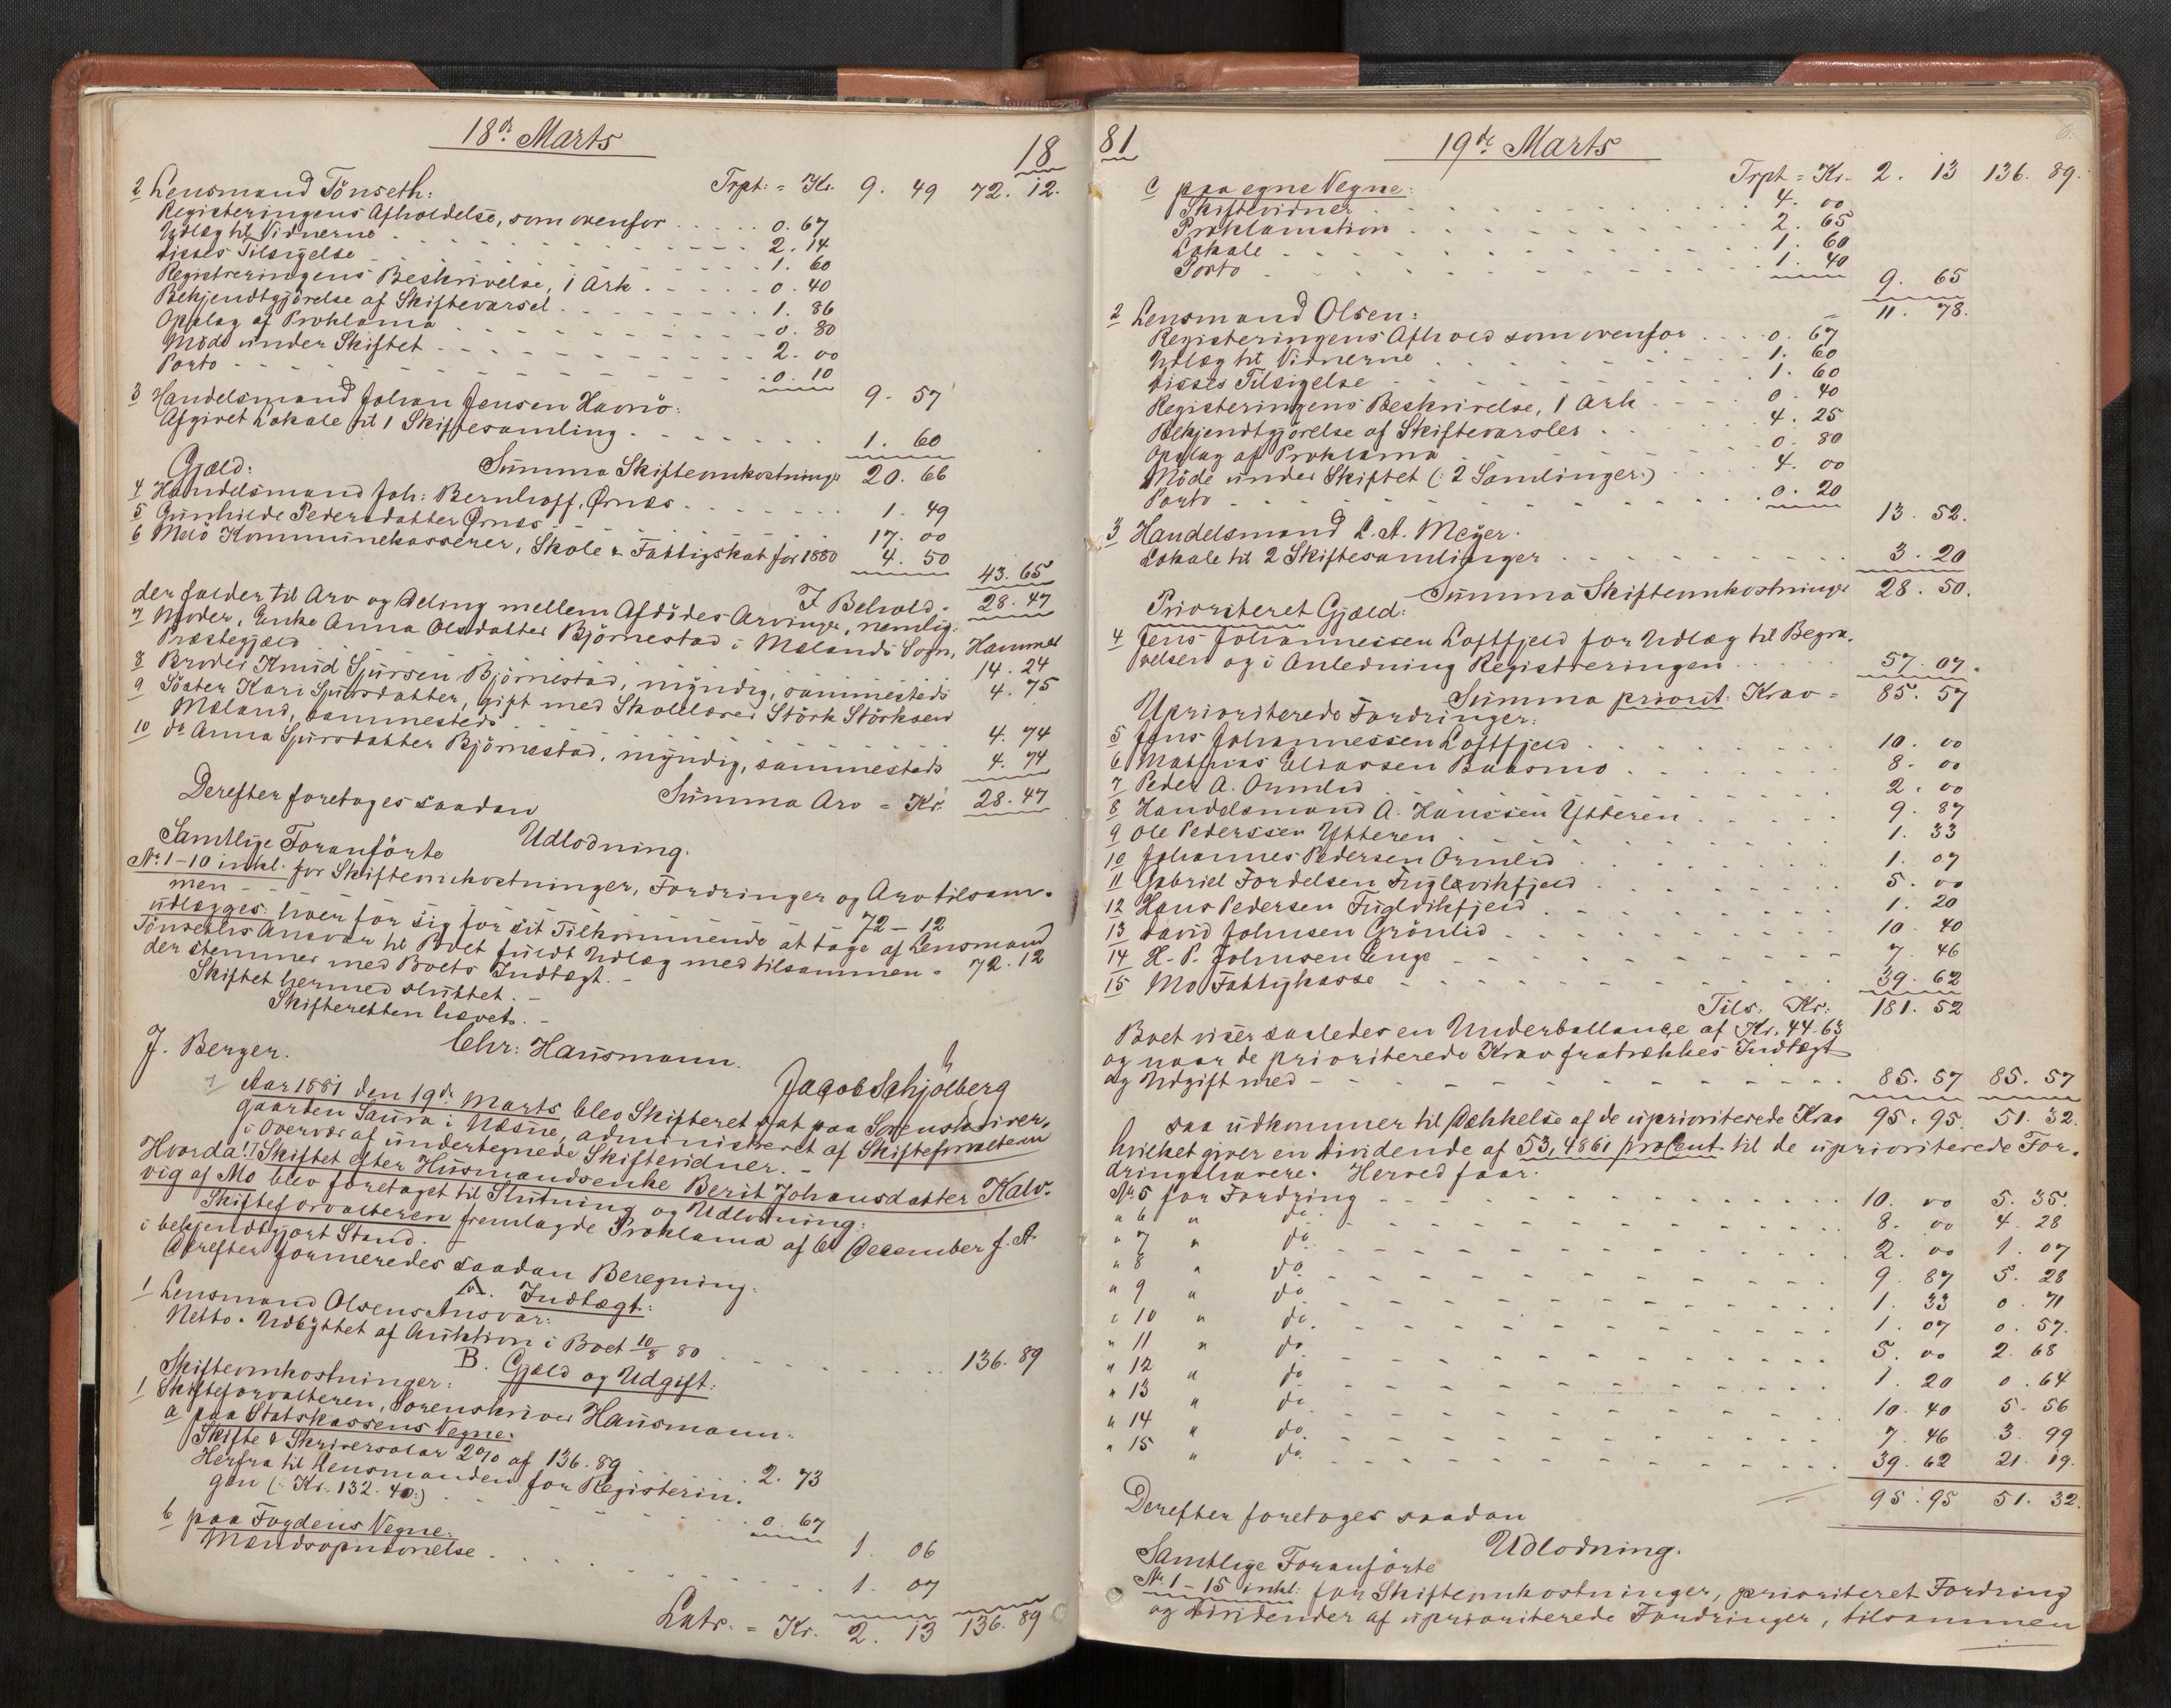 18de Marts
18
2 Lensmand Tönseth: Trpt: = Kr. 9. 49 72. 12.
Registeringens Afholdelse, som ovenfor 0. 67
Udlæg til Vidnerne 2. 14
disses Tilsigelse 1. 60
Registreringens Beskrivelse, 1 Ark 0. 40
Bekjendtgjörelse af Skiftevarsel 1. 86
Opslag af Proklama 0. 80
Möde under Skiftet 2. 00
Porto 0. 10
9. 57
3 Handelsmand Johan Jensen Havnö:
Afgivet Lokale til 1 Skiftesamling 1. 60
Summa Skifteomkostninger 20. 66
Gjæld:
4 Handelsmand Joh: Bernhoff, Ørnæs 1. 49
5 Gunhilde Pedersdatter Ørnæs 17. 00
6 Melö Kommunekasserer, Skole & Fattigskat for 1880 4. 50
43. 65
I Behold = 28. 47
der falder til Arv og Deling mellem Afdödes Arvinger, nemlig:
7 Moder, Enke Anna Olsdatter Björnestad i Mælands Sogn, Hammer
Præstegjæld 14. 24
8 Broder Knud Sjursen Björnestad, myndig, sammesteds 4. 75
9 Söster Kari Sjursdatter, gift med Skolelærer Störk Störksen
Mæland, sammesteds 4. 74
10 do Anna Sjursdatter Björnestad, myndig, sammesteds 4. 74
Summa Arv = Kr. 28. 47
Derefter foretages saadan
Udlodning:
Samtlige Foranförte
No 1-10 inkl. for Skifteomkostninger, Fordringer og Arv tilsam-
men 72 - 12
udlægges: hver for sig for sit Tilkommende at tage af Lensmand
Tönseths Ansvar til Boet fuldt Udlæg med tilsammen = 72. 12
der stemmer med Boets Indtægt. -
Skiftet hermed sluttet. -
Skifteretten hævet. -
Chr: Hausmann.
J. Berger.
Jacob Schjölberg
Aar 1881 den 19de Marts blev Skifteret sat paa Sorenskriver-
gaarden Saura i Næsne, administreret af Skifteforvalteren
i Overvær af undertegnede Skiftevidner. -
Hvorda: Skiftet efter Husmandsenke Berit Johansdatter Kalv-
vig af Mo blev foretaget til Slutning og Udlodning:
Skifteforvalteren fremlagde Proklama af 6 December f. A.
i bekjendtgjort Stand. -
Derefter formeredes saadan Beregning:
A. Indtægt:
1 Lensmand Olsens Ansvar:
Netto-Udbyttet af Auktion i Boet 10/8 80 136. 89
B. Gjæld og Udgift:
Skifteomkostninger:
1 Skifteforvalteren, Sorenskriver Hausmann:
a paa Statskassens Vegne:
Skifte & Skriversalær 2% af 136. 89 2. 73
Herfra til Lensmanden for Registerin-
gen (: Kr. 132. 40:) 0. 67
1. 06
b paa Fogdens Vegne:
Mændsopnævnelse 1. 07
Latr. = Kr. 2. 13 136. 89
81
19de Marts
Trpt = Kr. 2. 13 136. 89.
c paa egne Vegne:
Skiftevidner 4. 00
Proklamation 2. 65
Lokale 1. 60
Porto 1. 40
9. 65
11. 78.
2 Lensmand Olsen:
Registeringens Afhold som ovenfor 0. 67
Udlæg til Vidnerne 1. 60
disses Tilsigelse 1. 60
Registeringens Beskrivelse, 1 Ark 0. 40
Bekjendtgjörelse af Skiftevarsler 4. 25
Opslag af Proklama 0. 80
Möde under Skiftet (: 2 Samlinger:) 4. 00
Porto 0. 20
13. 52.
3 Handelsmand L. A. Meyer.
Lokale til 2 Skiftesamlinger 3. 20
Summa Skifteomkostninger 28. 50.
Prioriteret Gjæld:
4 Jens Johannessen Loftfjeld for Udlæg til Begra-
velsen og i Anledning Registreringen 57. 07.
Summa priorit: Krav = 85. 57
Uprioriterede Fordringer:
5 Jens Johannessen Loftfjeld 10. 00
6 Mathias Eliassen Baasmo 8. 00
7 Peder A. Ormlid 2. 00
8 Handelsmand A. Hanssen Ytteren 9. 87
9 Ole Pederssen Ytteren 1. 33
10 Johannes Pedersen Ormlid 1. 07
11 Gabriel Fordelsen Fuglevikfjeld 5. 00
12 Hans Pedersen Fuglvikfjeld 1. 20
13 David Johnsen Grönlid 10. 40
14 H. P. Johnsen Enge 7. 46
15 Mo Fattigkasse 39. 62
Tils. Kr: 181. 52
Boet viser saaledes en Underballance af Kr. 44-63
og naar de prioriterede Krav fratrækkes Indtægt
og Udgift med 85. 57 85. 57
saa udkommer til Dækkelse af de uprioriterede Krav 95. 95. 51. 32.
hvilket giver en Dividende af 53,4861 procent til de uprioriterede For-
dringshavere. Herved faar:
No 5 for Fordring 10. 00 5. 35.
" 6 " do 8. 00 4. 28
" 7 " do 2. 00 1. 07
" 8 " do 9. 87 5. 28
" 9 " do 1. 33 0. 71
" 10 " do 1. 07 0. 57.
" 11 " do 5. 00 2. 68
" 12 " do 1. 20 0. 64
" 13 " do 10. 40 5. 56
" 14 " do 7. 46 3. 99
" 15 " do 39. 62 21. 19.
95. 95 51. 32.
Derefter foretages saadan
Udlodning.
Samtlige Foranförte
No 1-15 inkl: for Skifteomkostninger, prioriteret Fordring
og Dividender af uprioriterede Fordringer, tilsammen